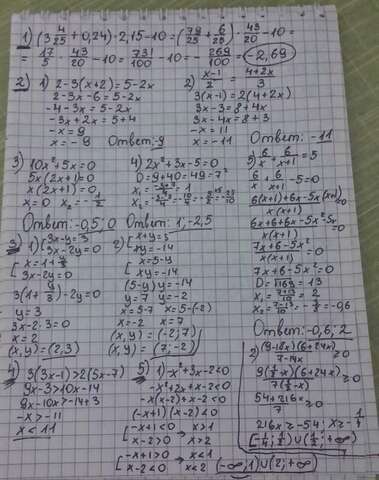 1) (3 4/25 + 0,24) · 2,15 - 10 = (79/25 + 6/25) · 43/20 - 10 =
= 17/5 · 43/20 - 10 = 731/100 - 10 = - 269/100 = -2,69
2) 1) 2-3(x+2) = 5-2x
2-3x-6 = 5-2x
-4-3x = 5-2x
-3x+2x = 5+4
-x = 9
x = -9 Ответ: -9
2) x-1/2 = 4+2x/3
3(x-1) = 2(4+2x)
3x-3 = 8+4x
3x-4x = 8+3
-x = 11
x = -11
Ответ: -11
3) 10x²+5x=0
5x(2x+1)=0
x(2x+1)=0
x=0 x₂=-1/2
Ответ: -0,5; 0
4) 2x²+3x-5=0
D=9+40=49=7²
Ответ: 1; -2,5
5) 6/x + 6/x+1 = 5
6/x + 6/x+1 - 5 = 0
6(x+1)+6x-5x(x+1)/x(x+1)
6x+6+6x-5x²-5x/x(x+1) = 0
7x+6-5x²/x(x+1) = 0
7x+6-5x²=0
D=√169=13
x₁ = 7+13/10 = 2
x₂ = 7-13/10 = -0,6
Ответ: -0,6; 2
3) 1) {3x-y=3
3x-2y=0
{x=1+y/3
3x-2y=0
3(1+y/3)-2y=0
y=3
3x-2·3=0
x=2
(x,y)=(2,3)
2) {x+y=5
xy=-14
{x=5-y
xy=-14
(5-y)y=-14
y=7 y=-2
x=5-7 x=5-(-2)
x=-2 x=7
(x,y)=(-2;7)
(x,y)=(7;-2)
4) 3(3x-1)>2(5x-7)
9x-3>10x-14
9x-10x>-14+3
-x>-11
x<11
5) 1) -x²+3x-2<0
-x²+2x+x-2<0
-x(x-2)+x-2<0
(-x+1)(x-2)<0
{-x+1<0 x>1
x-2>0 x>2
{-x+1>0 x<1
x-2<0 x<2
(-∞;1)∪(2;+∞)
2) (9-18x)(6+24x)/7-14x ≥0
9(1-2x)(6+24x)/7(1-2x) ≥0
54+216x/7 ≥0
216x≥-54; x≥-1/4
[-1/4; 1/2)∪(1/2; +∞)